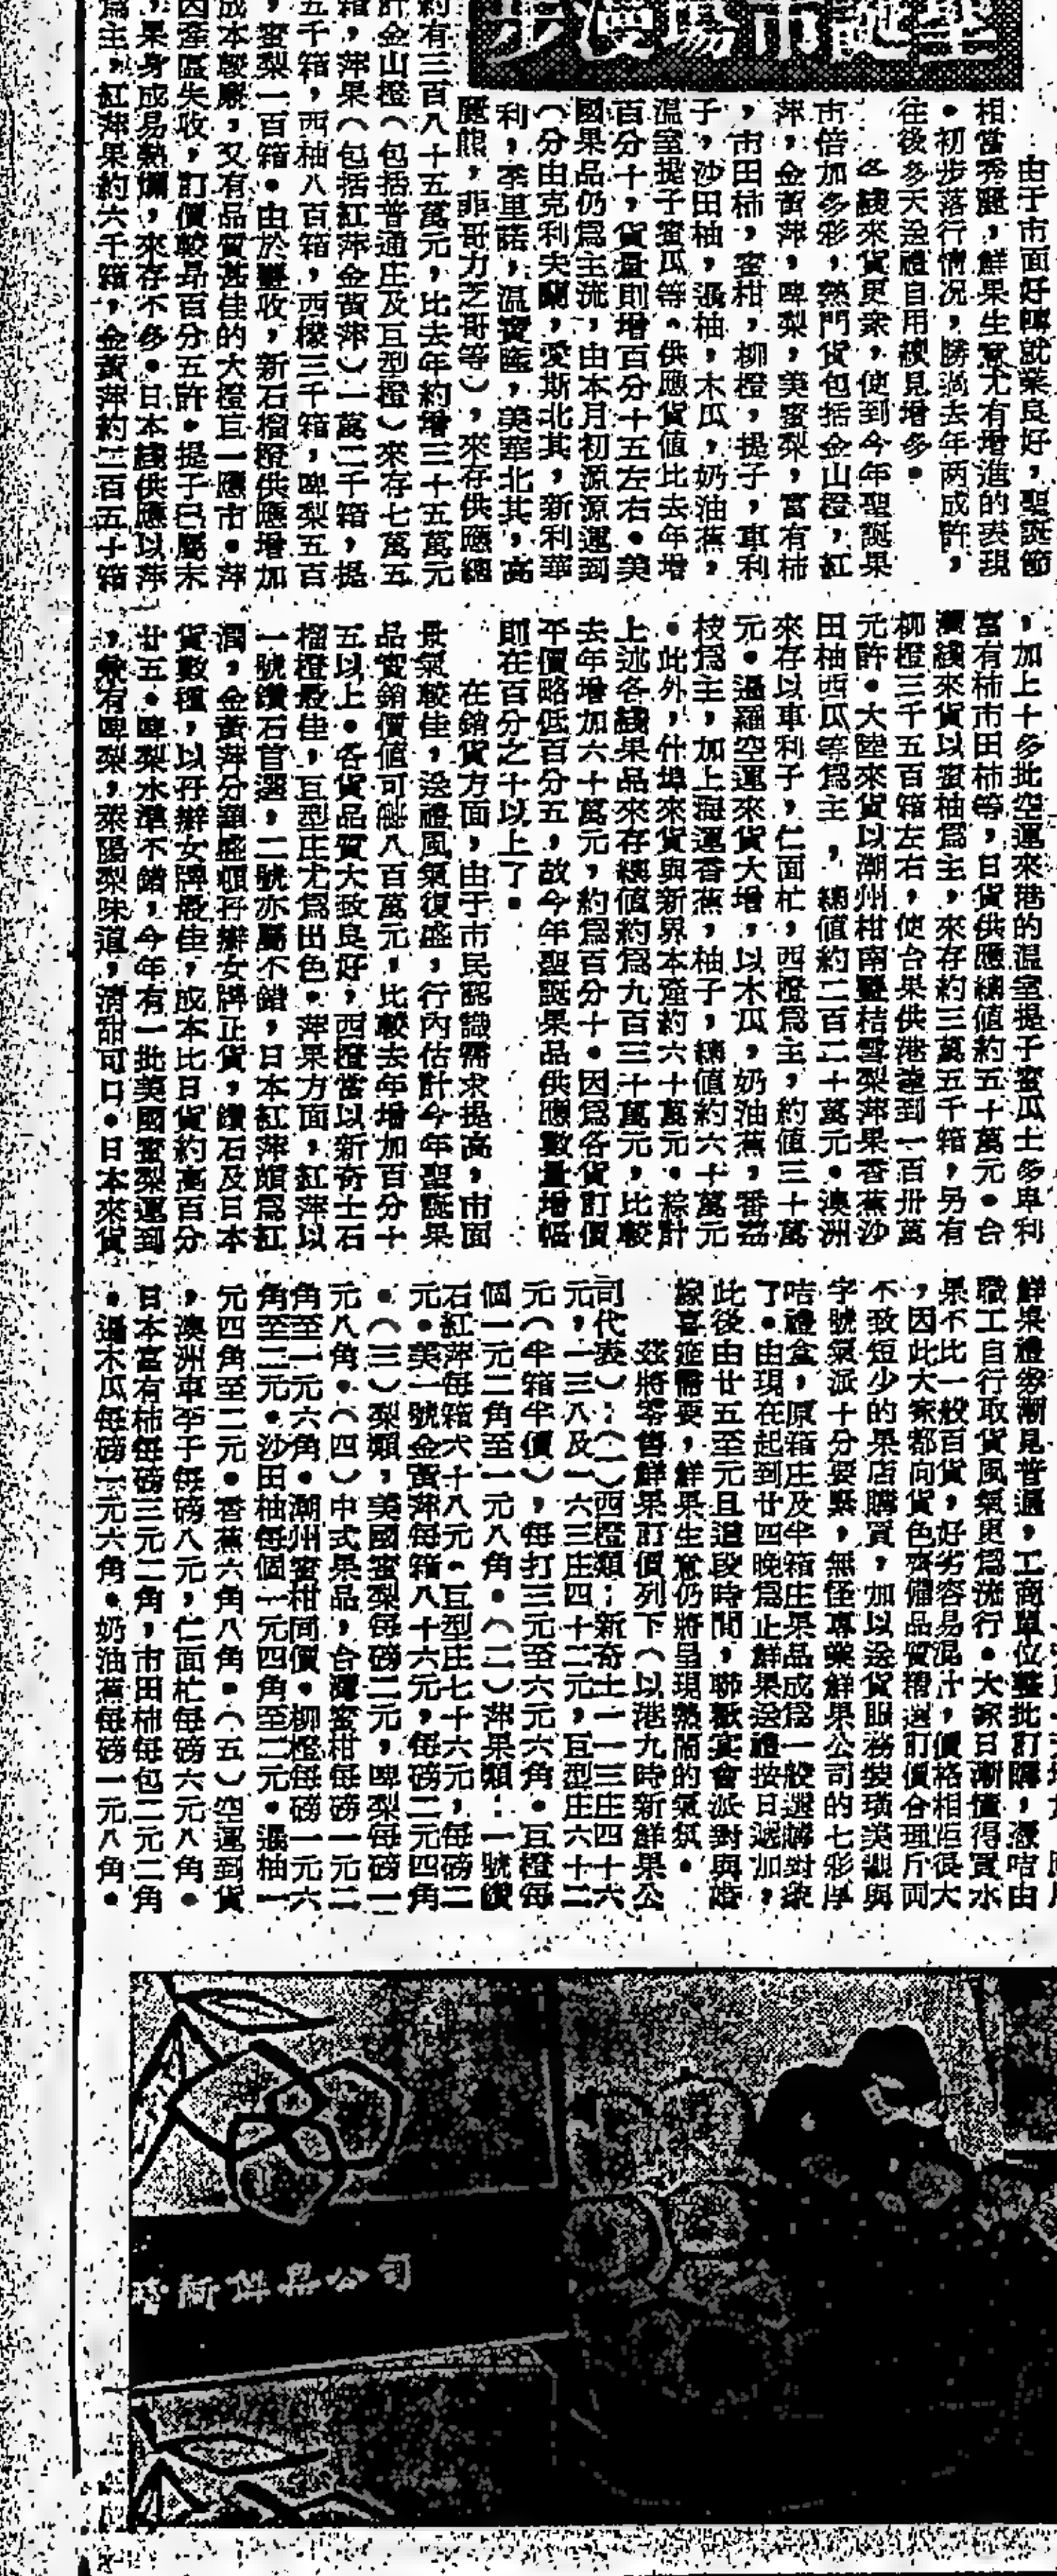 聖誕市場漫步
由于市面好轉就業良好，聖誕節
相當秀麗，鮮果生意尤有增進的表現
。初步落行情况，勝過去年两成許，
往後多天送禮自用續見增多。
各綫來貨更衆，使到今年聖誕果
市倍加多彩，熱門貨包括金山橙，紅
萍，金黃萍，啤梨，美蜜梨，富有柿
，市田柿，蜜柑，柳橙，提子，車利
子，沙田柚，暹柚，木瓜，奶油蕉，
温室提子蜜瓜等。供應貨值比去年增
百分十，貨量則增百分十五左右。美
國果品仍爲主流，由本月初源源運到
（分由克利夫蘭，愛斯北其，新利華
利，季里諾，温實隆，美華北其，高
麗熊，菲哥力芝哥等），來存供應總
約有三百八十五萬元，比去年約增三十五萬元
計金山橙（包括普通庄及巨型橙）來存七萬五
箱，萍果（包括紅萍金黃萍）一萬二千箱，提
五千箱，西柚八百箱，西檬三千箱，啤梨五百
，蜜梨一百箱。由於豐收，新石榴橙供應增加
成本較廉，又有品質甚佳的大橙亘一應市。萍
因產區失收，訂價較昂百分五許。提子已屬末
，果身成易熟爛，來存不多。日本綫供應以萍
爲主，紅萍果約六千箱，金黃萍約二百五十箱
，加上十多批空運來港的温室提子蜜瓜士多卑利
富有柿市田柿等，日貨供應總值約五十萬元。台
灣綫來貨以蜜柚爲主，來存約三萬五千箱，另有
柳橙三千五百箱左右，使台果供港達到一百卅萬
元許。大陸來貨以潮州柑南豐桔雪梨萍果香蕉沙
田柚西瓜等爲主，總值約二百二十萬元。澳洲
來存以車利子，仁面杧，西橙爲主，約值三十萬
元。暹羅空運來貨大增，以木瓜，奶油蕉，番荔
枝爲主，加上海運香蕉，柚子，總值約六十萬元
。此外，什埠來貨與新界本產約六十萬元。綜計
上述各綫果品來存總值約爲九百三十萬元，比較
去年增加六十萬元，約爲百分十。因爲各貨訂價
平價略低百分五，故今年聖誕果品供應數量增幅
即在百分之十以上了。
在銷貨方面，由于市民認識需求提高，市面
景氣較佳，送禮風氣復盛，行內估計今年聖誕果
品實銷價值可達八百萬元，比較去年增加百分十
五以上。各貨品質大致良好，西橙當以新奇士石
榴橙最佳，亘型庄尤爲出色。萍果方面，紅萍以
一號鑽石首選，二號亦屬不錯，日本紅萍頗爲紅
潤，金黃萍分華盛頓孖辮女牌正貨，鑽石及日本
貨數種，以孖辮女牌最佳，成本比日貨約高百分
廿五。啤梨水準不錯，今年有一批美國蜜梨運到
，兼有啤梨，萊陽梨味道，清甜可口。日本來貨
鮮果禮券漸見普通，工商單位整批訂購，憑咭由
職工自行取貨風氣更爲流行。大家日漸懂得買水
果不比一般百貨，好劣容易混汁，價格相距很大
，因此大家都向貨色齊備品質精選訂價合理斤両
不致短少的果店購買，加以送貨服務裝璜美觀與
字號氣派十分要緊，無怪專業鮮果公司的七彩厚
咭禮盒，原箱庄及半箱庄果品成爲一般選購對象
了。由現在起到廿四晚爲止鮮果送禮按日遞加，
此後由廿五至元旦這段時間，聯歡宴會派對與婚
嫁喜筵需要，鮮果生意仍將呈現熱鬧的氣氛。
茲將零售鮮果訂價列下（以港九時新鮮果公
司代表）：（一）西橙類：新奇士一一三庄四十六
元，一三八及一六三庄四十二元，亘型庄六十二
元（半箱半價），每打三元至六元六角。亘橙每
個一元二角至一元八角。（二）萍果類：一號鑽
石紅萍每箱六十八元。亘型庄七十六元，每磅二
元。美一號金黃萍每箱八十六元，每磅二元四角
。（三）梨類，美國蜜梨每磅二元，啤梨每磅一
元八角。（四）中式果品，台灣蜜柑每磅一元二
角至一元六角。潮州蜜柑同價。柳橙每磅一元六
角至二元。沙田柚每個一元四角至二元。暹柚一
元四角至二元。香蕉六角八角。（五）空運到貨
，澳洲車李子每磅八元，仁面杧每磅六元八角。
日本富有柿每磅三元二角，市田柿每包二元二角
。暹木瓜每磅一元六角。奶油蕉每磅一元八角。
時新鮮果公司